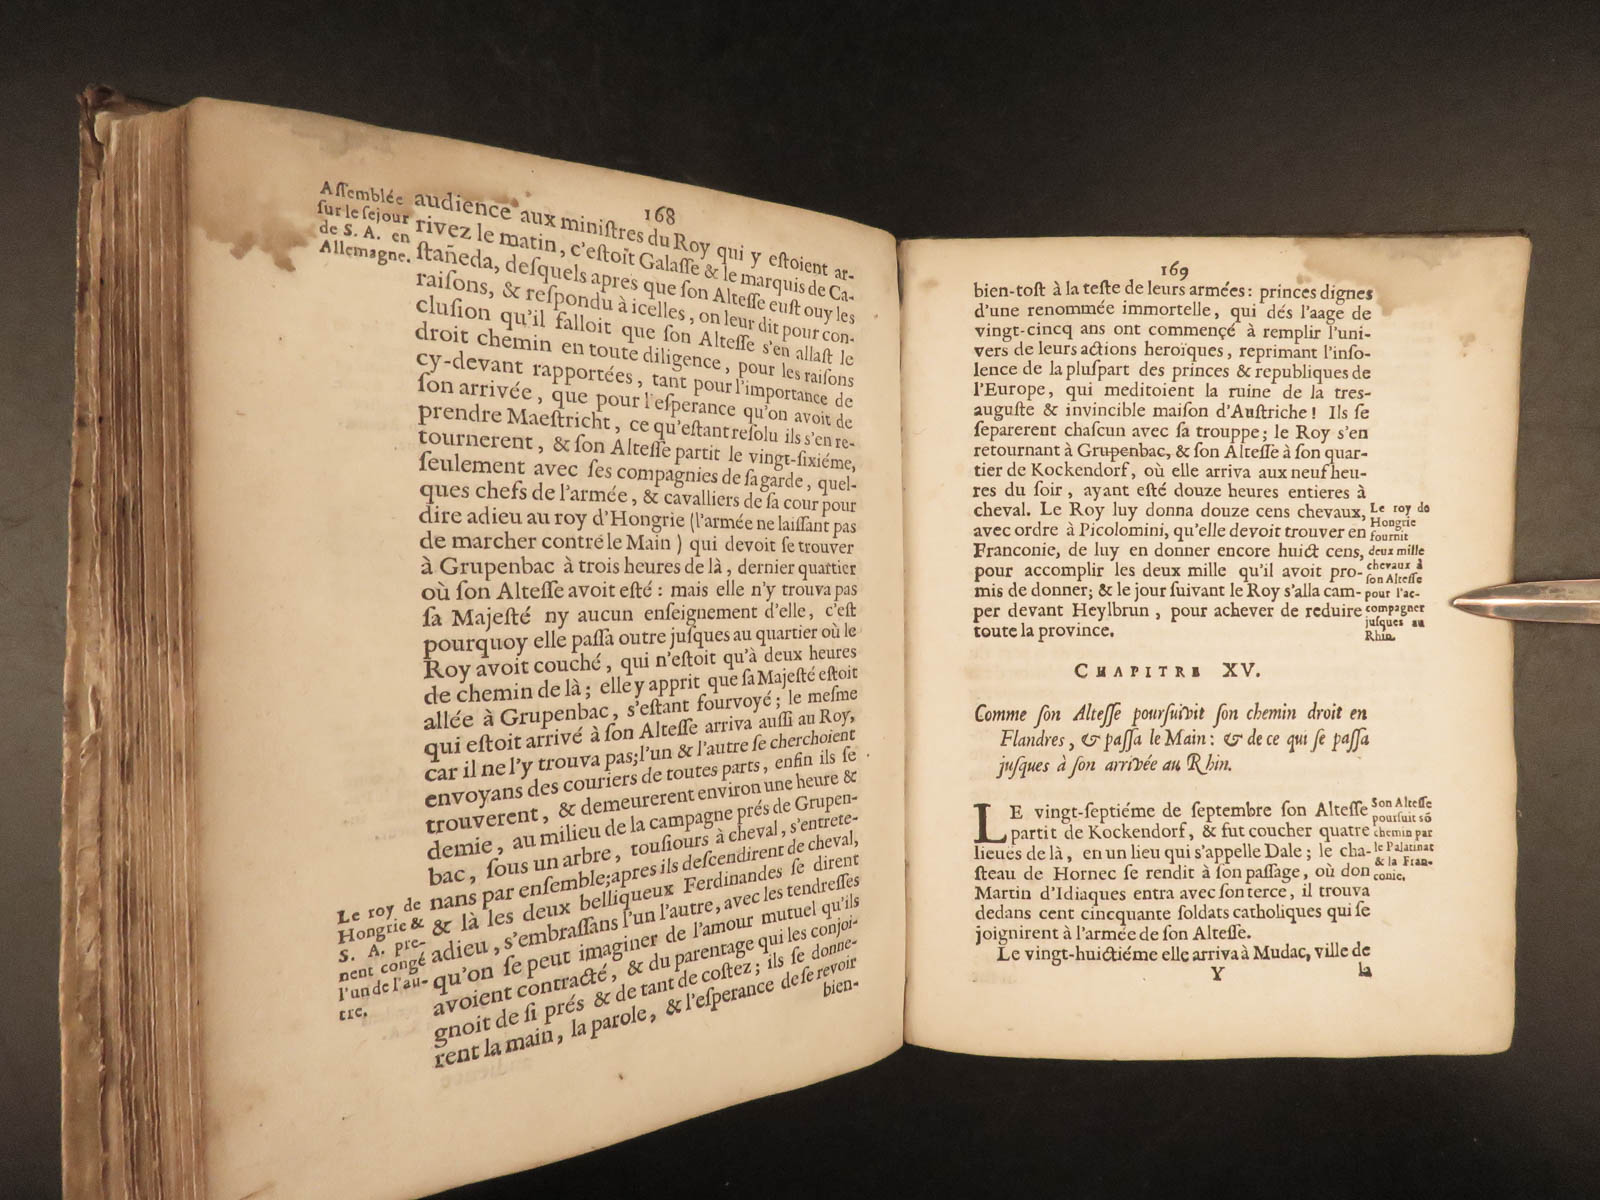 168
Assemblée
sur le sejour
de S. A. en
Allemagne.
audience aux ministres du Roy qui y estoient ar-
rivez le matin, c'estoit Galasse & le marquis de Ca-
stañeda, desquels apres que son Altesse eust ouy les
raisons, & respondu à icelles, on leur dit pour con-
clusion qu'il falloit que son Altesse s'en allast le
droit chemin en toute diligence, pour les raisons
cy-devant rapportées, tant pour l'importance de
son arrivée, que pour l'esperance qu'on avoit de
prendre Maestricht, ce qu'estant resolu ils s'en re-
tournerent, & son Altesse partit le vingt-sixiéme,
seulement avec ses compagnies de sa garde, quel-
ques chefs de l'armée, & cavalliers de sa cour pour
dire adieu au roy d'Hongrie (l'armée ne laissant pas
de marcher contré le Main) qui devoit se trouver
à Grupenbac à trois heures de là, dernier quartier
où son Altesse avoit esté: mais elle n'y trouva pas
sa Majesté ny aucun enseignement d'elle, c'est
pourquoy elle passa outre jusques au quartier où le
Roy avoit couché, qui n'estoit qu'à deux heures
de chemin de là; elle y apprit que sa Majesté estoit
allée à Grupenbac, s'estant fourvoyé; le mesme
qui estoit arrivé à son Altesse arriva aussi au Roy,
car il ne l'y trouva pas; l'un & l'autre se cherchoient
envoyans des couriers de toutes parts, enfin ils se
trouverent, & demeurerent environ une heure &
demie, au milieu de la campagne prés de Grupen-
bac, sous un arbre, tousiours à cheval, s'entrete-
nans par ensemble; apres ils descendirent de cheval,
& là les deux belliqueux Ferdinandes se dirent
adieu, s'embrassans l'un l'autre, avec les tendresses
qu'on se peut imaginer de l'amour mutuel qu'ils
avoient contracté, & du parentage qui les conjoi-
gnoit de si prés & de tant de costez; ils se donne-
rent la main, la parole, & l'esperance de se revoir
bien-
Le roy de
Hongrie &
S. A. pre-
nent congé
l'un de l'au-
tre.
169
bien-tost à la teste de leurs armées: princes dignes
d'une renommée immortelle, qui dés l'aage de
vingt-cincq ans ont commençé à remplir l'uni-
vers de leurs actions heroïques, reprimant l'inso-
lence de la pluspart des princes & republiques de
l'Europe, qui meditoient la ruine de la tres-
auguste & invincible maison d'Austriche! Ils se
separerent chascun avec sa trouppe; le Roy s'en
retournant à Grupenbac, & son Altesse à son quar-
tier de Kockendorf, où elle arriva aux neuf heu-
res du soir, ayant esté douze heures entieres à
cheval. Le Roy luy donna douze cens chevaux,
avec ordre à Picolomini, qu'elle devoit trouver en
Franconie, de luy en donner encore huict cens,
pour accomplir les deux mille qu'il avoit pro-
mis de donner; & le jour suivant le Roy s'alla cam-
per devant Heylbrun, pour achever de reduire
toute la province.
Le roy de
Hongrie
fournit
deux mille
chevaux à
son Altesse
pour l'ac-
compagner
jusques au
Rhin.
CHAPITRE XV.
Comme son Altesse poursuivit son chemin droit en
Flandres, & passa le Main: & de ce qui se passa
jusques à son arrivée au Rhin.
LE vingt-septiéme de septembre son Altesse
partit de Kockendorf, & fut coucher quatre
lieuës de là, en un lieu qui s'appelle Dale; le cha-
steau de Hornec se rendit à son passage, où don
Martin d'Idiaques entra avec son terce, il trouva
dedans cent cincquante soldats catholiques qui se
joignirent à l'armée de son Altesse.
Le vingt-huictiéme elle arriva à Mudac, ville de
Son Altesse
poursuit sõ
chemin par
le Palatinat
& la Fran-
conie.
Y
la